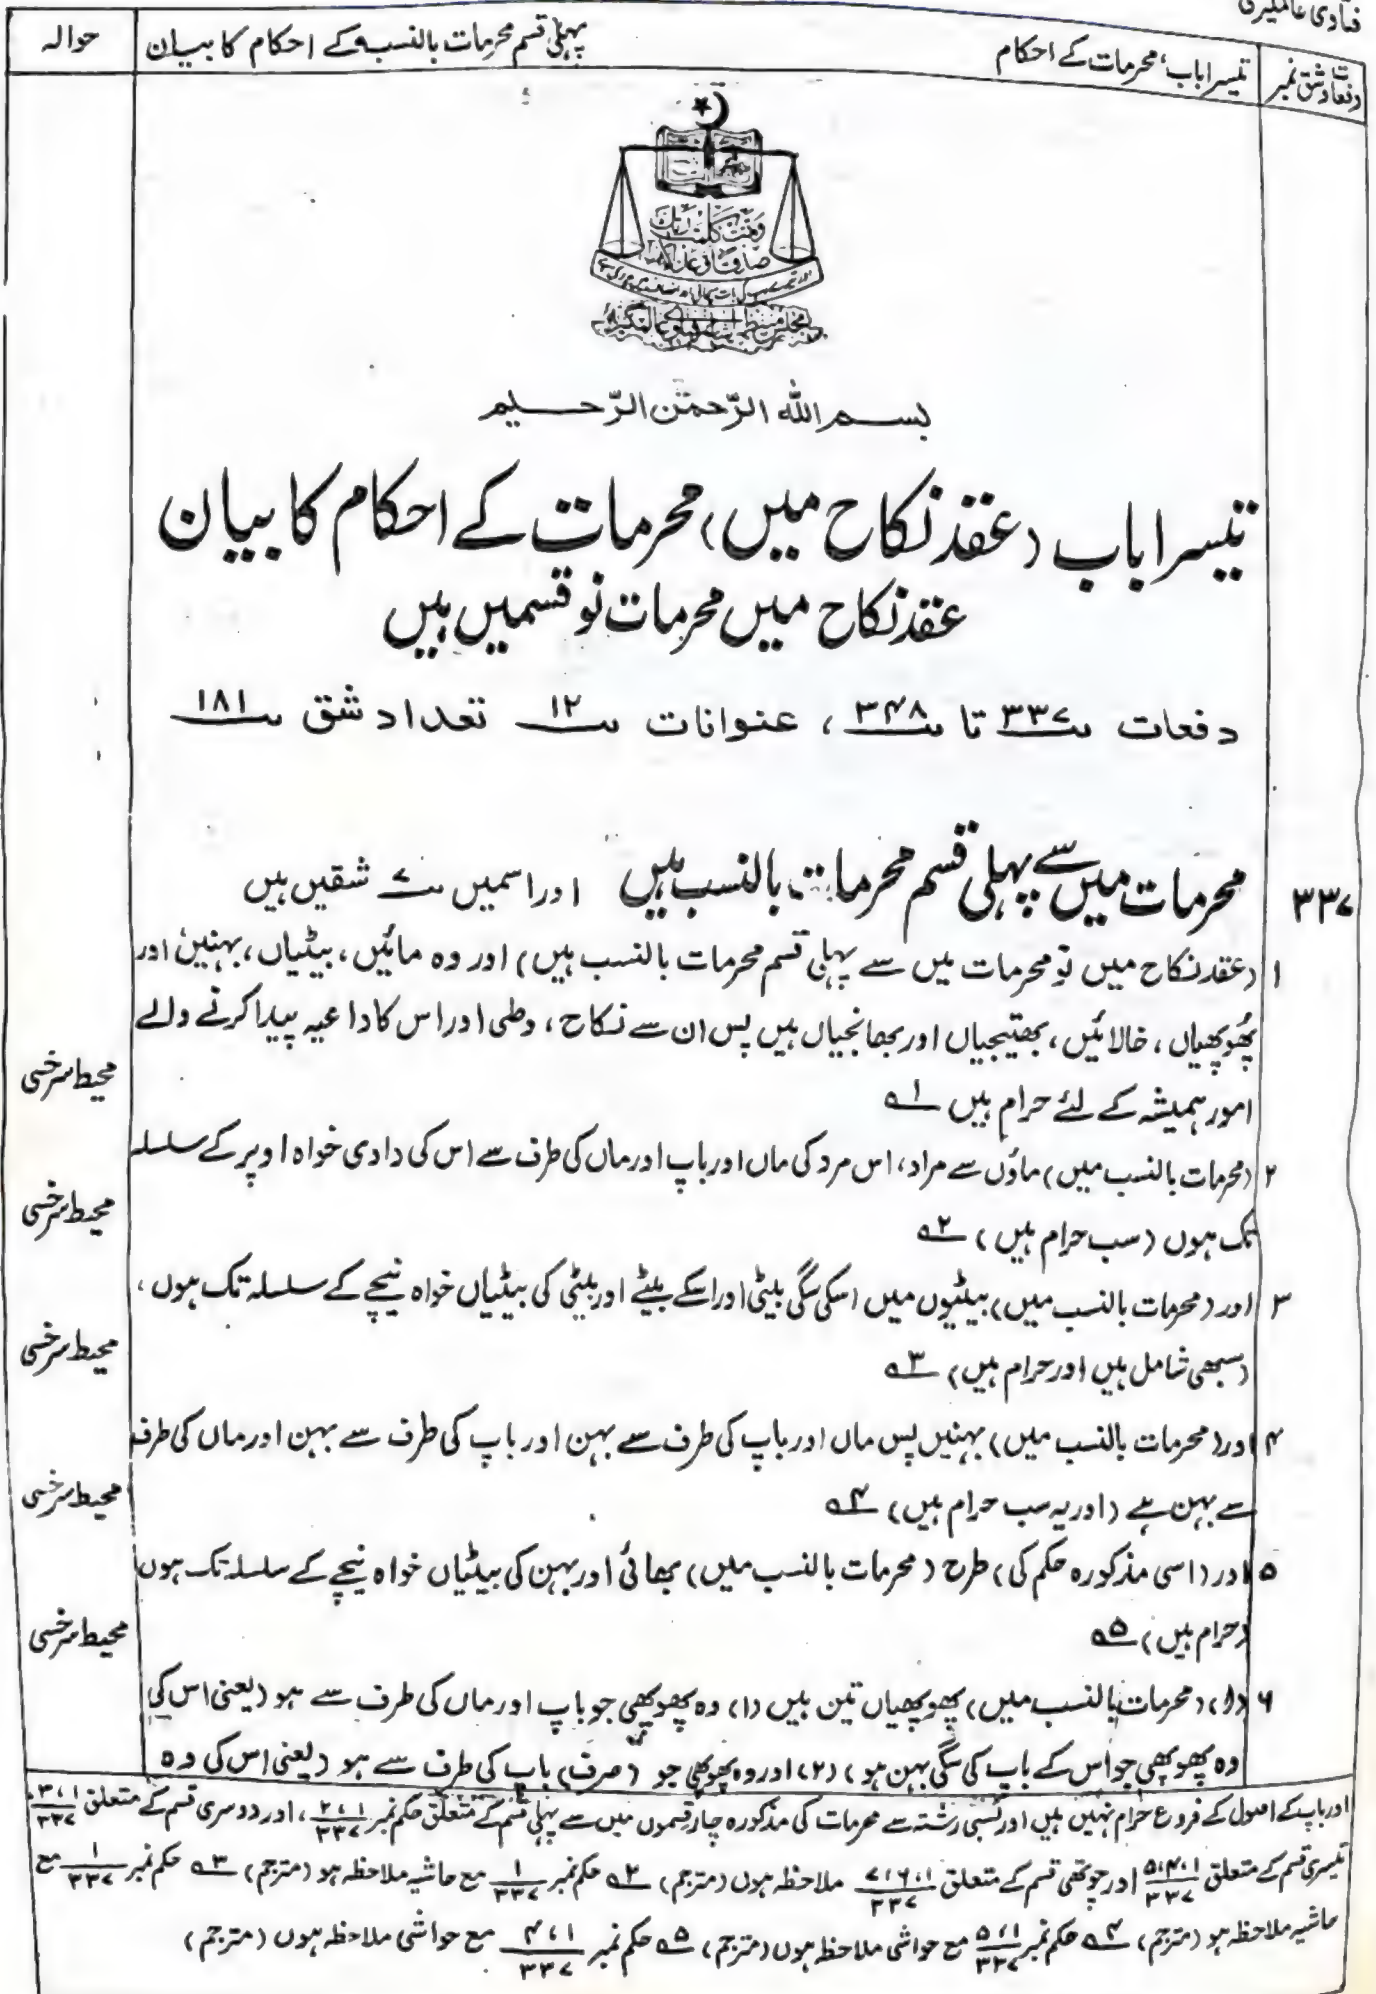 فتاویٰ عالمگیری
دفعات شق نمبر
تیسرا باب، محرمات کے احکام
پہلی قسم محرمات بالنسب کے احکام کا بیان
حوالہ
بسم اللہ الرّحمٰن الرّحیم
تیسرا باب (عقد نکاح میں) محرمات کے احکام کا بیان
عقد نکاح میں محرمات نو قسمیں ہیں
دفعات ۳۳۷ تا ۳۴۸، عنوانات ۱۲ تعداد شق ۱۸۱
۳۳۷ محرمات میں سے پہلی قسم محرمات بالنسب ہیں اور اسمیں ۷ شقیں ہیں
۱ (عقد نکاح میں نو محرمات میں سے پہلی قسم محرمات بالنسب ہیں) اور وہ مائیں، بیٹیاں، بہنیں اور
پھوپھیاں، خالائیں، بھتیجیاں اور بھانجیاں ہیں پس ان سے نکاح، وطی اور اس کا داعیہ پیدا کرنے والے
محیط سرخسی
امور ہمیشہ کے لئے حرام ہیں ۱ھ
۲ (محرمات بالنسب میں) ماؤں سے مراد، اس مرد کی ماں اور باپ اور ماں کی طرف سے اس کی دادی خواہ اوپر کے سلسلہ
محیط سرخسی
تک ہوں (سب حرام ہیں) ۲ھ
۳ اور (محرمات بالنسب میں) بیٹیوں میں اسکی سگی بیٹی اور اسکے بیٹے اور بیٹی کی بیٹیاں خواہ نیچے کے سلسلہ تک ہوں،
محیط سرخسی
(سبھی شامل ہیں اور حرام ہیں) ۳ھ
۴ اور (محرمات بالنسب میں) بہنیں پس ماں اور باپ کی طرف سے بہن اور باپ کی طرف سے بہن اور ماں کی طرف
محیط سرخسی
سے بہن ہے (اور یہ سب حرام ہیں) ۴ھ
۵ اور (اسی مذکورہ حکم کی) طرح (محرمات بالنسب میں) بھائی اور بہن کی بیٹیاں خواہ نیچے کے سلسلہ تک ہوں
محیط سرخسی
(حرام ہیں) ۵ھ
۶ (ا) (محرمات بالنسب میں) پھوپھیاں تین ہیں (۱) وہ پھوپھی جو باپ اور ماں کی طرف سے ہو (یعنی اس کی
وہ پھوپھی جو اس کے باپ کی سگی بہن ہو) (۲) اور وہ پھوپھی جو (صرف) باپ کی طرف سے ہو (یعنی اس کی وہ
اور باپ کے اصول کے فروع حرام نہیں ہیں اور نسبی رشتہ سے محرمات کی مذکورہ چار قسموں میں سے پہلی قسم کے متعلق حکم نمبر ۲،۱/۳۳۷، اور دوسری قسم کے متعلق ۳،۱/۳۳۷
تیسری قسم کے متعلق ۵،۴،۱/۳۳۷ اور چوتھی قسم کے متعلق ۷،۶،۱/۳۳۷ ملاحظہ ہوں (مترجم) ۲ھ حکم نمبر ۱/۳۳۷ مع حاشیہ ملاحظہ ہو (مترجم) ۳ھ حکم نمبر ۱/۳۳۷ مع
حاشیہ ملاحظہ ہو (مترجم) ۴ھ حکم نمبر ۵،۱/۳۳۷ مع حواشی ملاحظہ ہوں (مترجم) ۵ھ حکم نمبر ۴،۱/۳۳۷ مع حواشی ملاحظہ ہوں (مترجم)